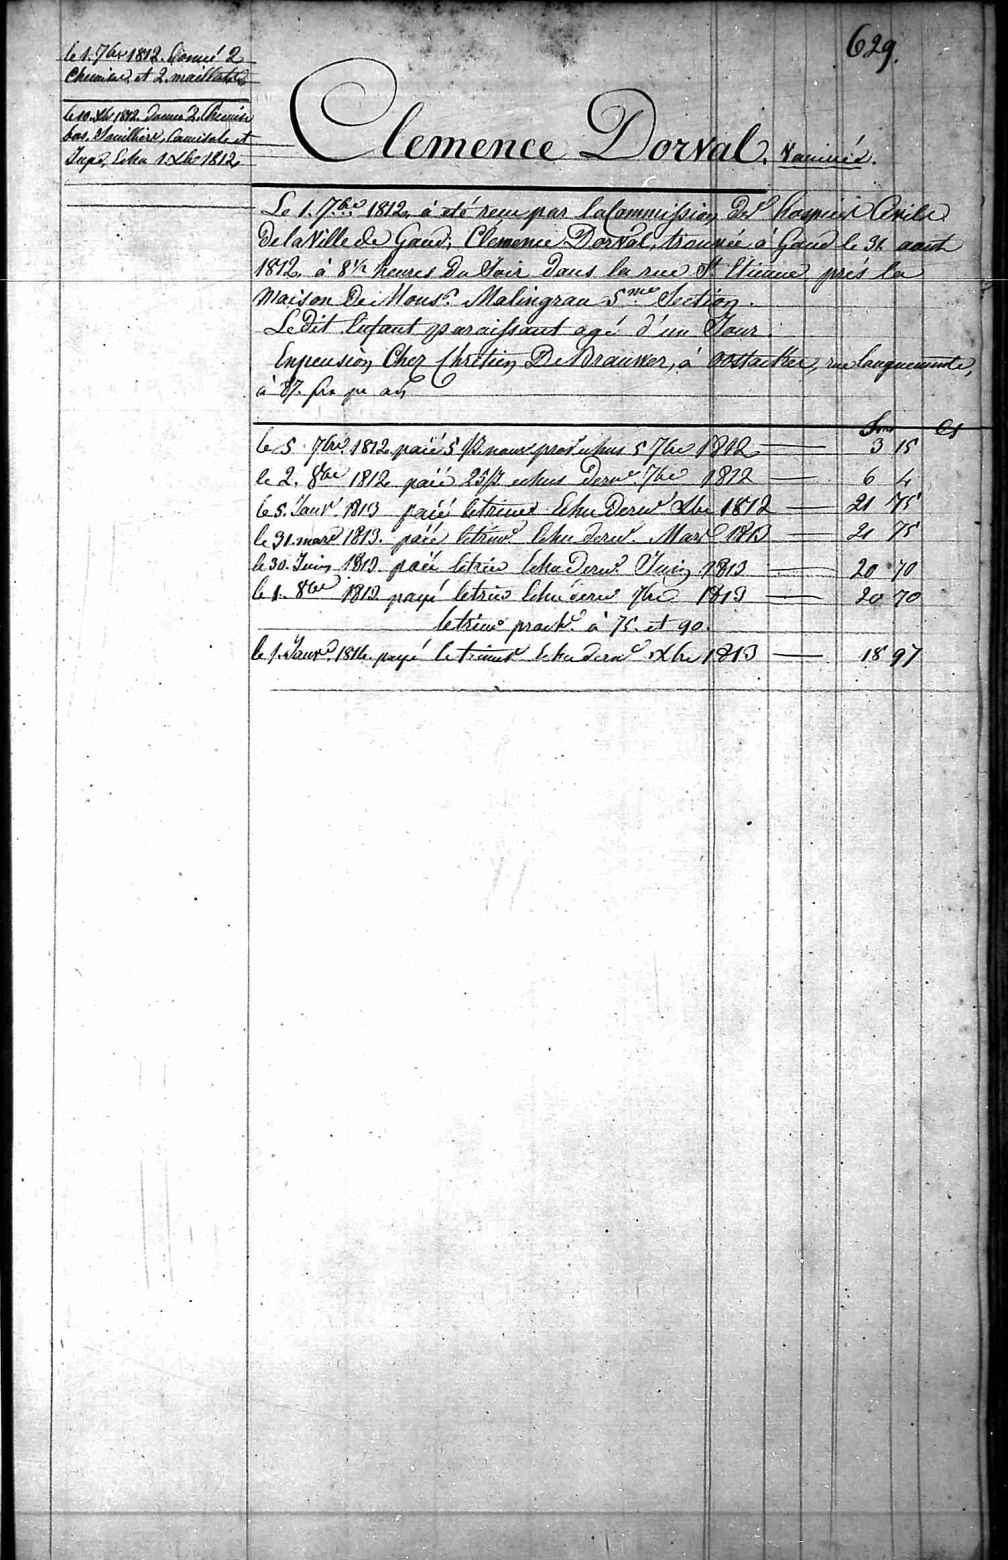 629.
le 1. 7bre 1812. donné 2
Chemises et 2 maillots
le 10. Xbr 1812 donné 2 Chemise
bas, Camisole et
Jupe, Echu 1 Xbre 1812
Clemence Dorval. Vaccinée.
Le 1. 7bre 1812, à eté recu par la Commission des hospices Civils
De la Ville de Gand, Clemence Dorval, trouvée à Gand le 31 aout
1812, à 8½ heures Du Soir dans la rue St Etienne prés la
Maison De Monsr. Malingrau 5me Section.
Le Dit Enfant paraissant agé d'un Jour
En pension Chez Chrétien De Brauwer, à oostacker, rue
à 87. frs pr an
Frs Cs
le 5 7bre 1812 paié 5 echus 5 7bre 1812 3 15
le 2. 8bre 1812 paié echus dernr 7bre 1812 6 4
le 5. Janvr. 1813 paié letrimes Echu Dernr Xbre 1812 21 75
le 31. mars 1813. paié letrimr Echu dernr. Mars 1813 21 75
le 30. Juin 1813. paié letrim Echu Dernr Juin 1813 20 70
le 1. 8bre 1813 payé letrim Echu dernr 7bre 1813 20 70
letrimr proch. à 75. et 90.
le 1. Janvr. 1814. payé letrimr Echu dernr Xbre 1813 18 97